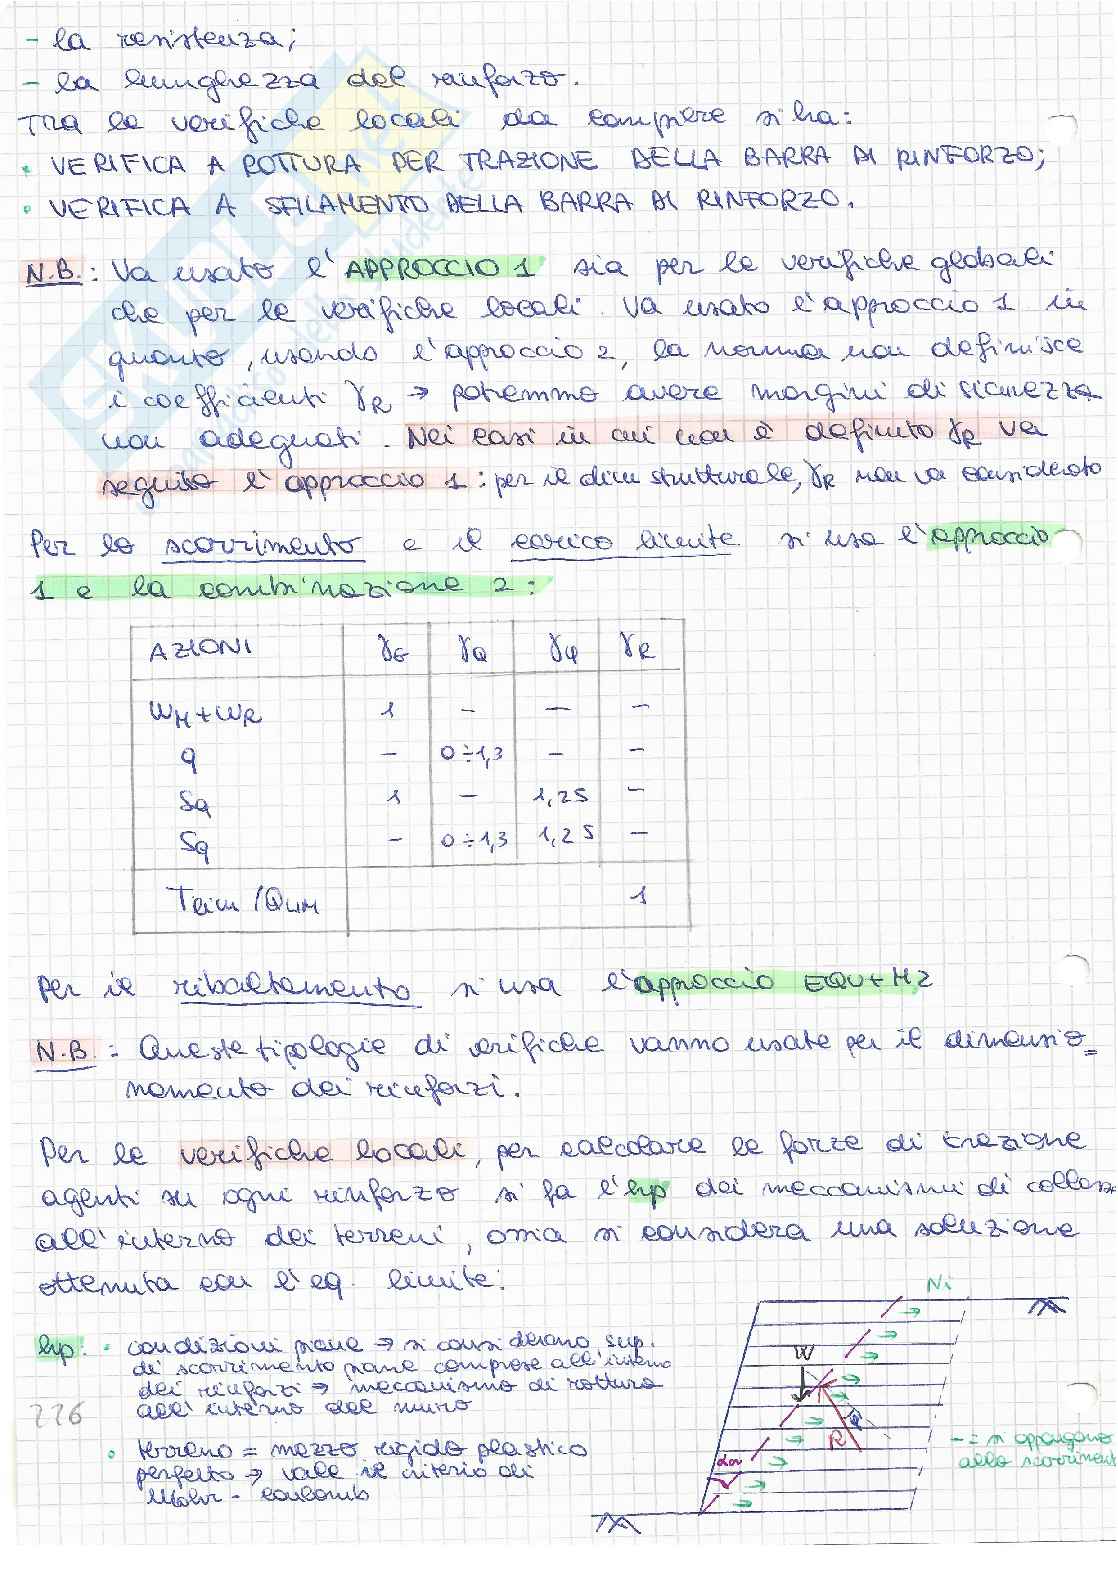 - la resistenza;
- la lunghezza del rinforzo.
Tra le verifiche locali da compiere si ha:
• VERIFICA A ROTTURA PER TRAZIONE DELLA BARRA DI RINFORZO;
• VERIFICA A SFILAMENTO DELLA BARRA DI RINFORZO.
N.B.: Va usato l'APPROCCIO 1 sia per le verifiche globali
che per le verifiche locali. Va usato l'approccio 1 in
quanto, usando l'approccio 2, la norma non definisce
i coefficienti γR → potremmo avere margini di sicurezza
non adeguati. Nei casi in cui non è definito γR va
seguito l'approccio 1: per il dim strutturale, γR non va considerato
Per lo scorrimento e il carico limite si usa l'approccio
1 e la combinazione 2:
AZIONI γG γQ γφ γR
WM+WR 1 - - -
q - 0÷1,3 - -
Sa 1 - 1,25 -
Sq - 0÷1,3 1,25 -
Tlim/Qlim 1
Per il ribaltamento si usa l'approccio EQU+M2
N.B. = Queste tipologie di verifiche vanno usate per il dimensio=
namento dei rinforzi.
Per le verifiche locali, per calcolare le forze di trazione
agenti su ogni rinforzo si fa l'hp dei meccanismi di collasso
all'interno dei terreni, ossia si considera una soluzione
ottenuta con l'eq. limite:
hp: • condizioni piane → si considerano sup.
di scorrimento piane comprese all'interno
dei rinforzi → meccanismo di rottura
all'interno del muro
• terreno = mezzo rigido plastico
perfetto → vale il criterio di
Mohr - Coulomb
Ni
W
R
φ
→ = si oppongono
allo scorrimento
226